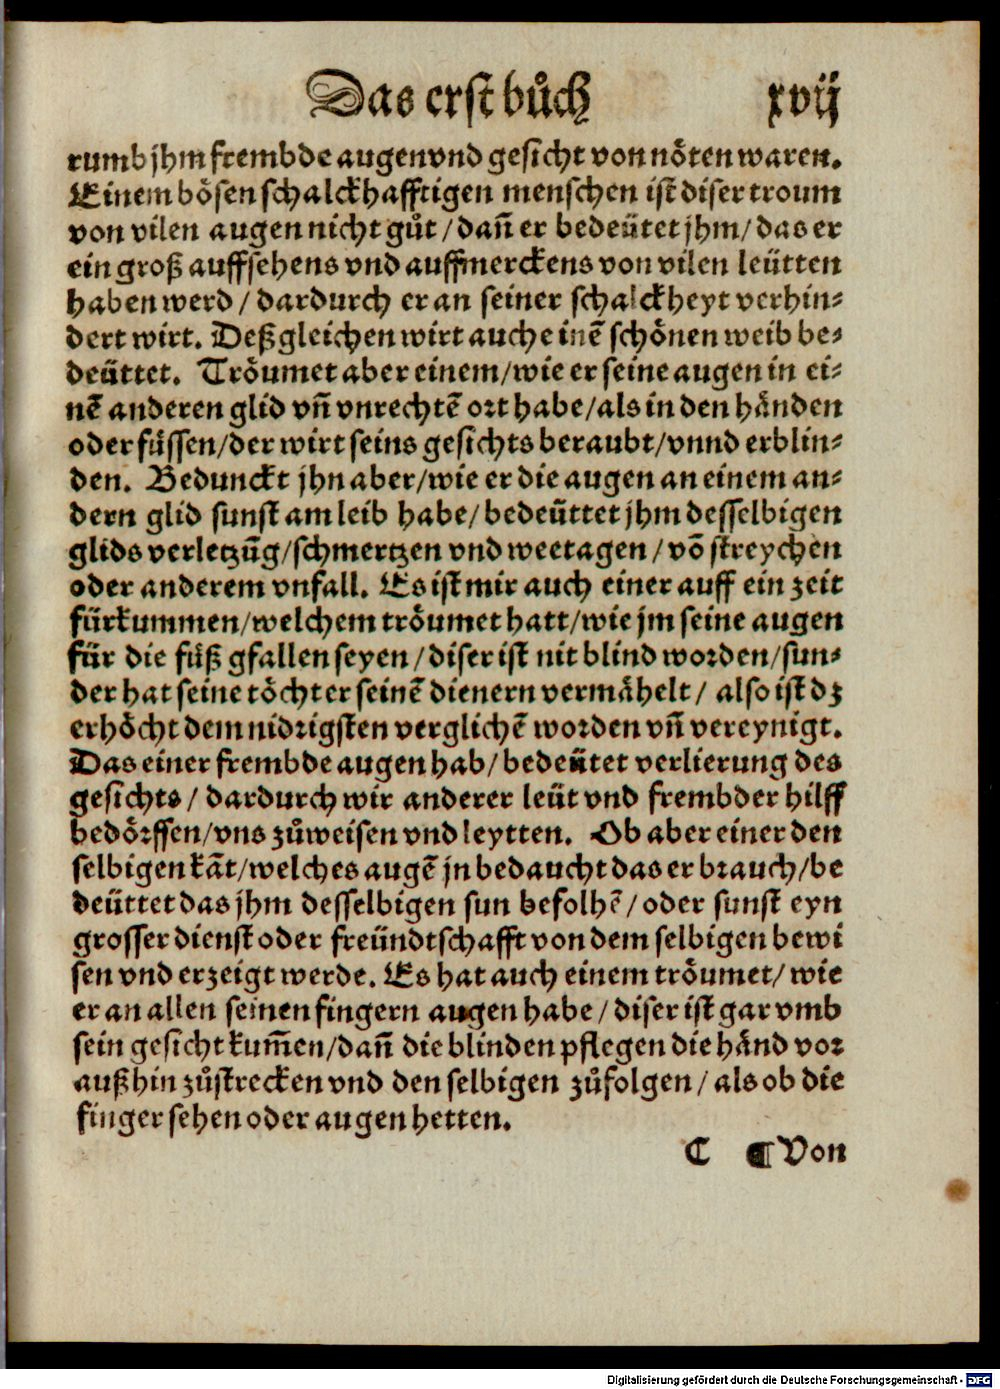 Das erst bůch xvij
rumb jhm frembde augen vnd gesicht von nöten waren.
Einem bösen schalckhafftigen menschen ist diser troum
von vilen augen nicht gůt / dañ er bedeütet jhm / das er
ein groß auffsehens vnd auffmerckens von vilen leütten
haben werd / dardurch er an seiner schalckheyt verhin⸗
dert wirt. Deßgleichen wirt auch einē schönen weib be⸗
deüttet. Tröumet aber einem / wie er seine augen in ei⸗
nē anderen glid vñ vnrechtē ort habe / als in den händen
oder füssen / der wirt seins gesichts beraubt / vnnd erblin⸗
den. Bedunckt jhn aber / wie er die augen an einem an⸗
dern glid sunst am leib habe / bedeüttet jhm desselbigen
glids verletzūg / schmertzen vnd weetagen / vō streychen
oder anderem vnfall. Es ist mir auch einer auff ein zeit
fürkummen / welchem tröumet hatt / wie jm seine augen
für die füß gfallen seyen / diser ist nit blind worden / sun⸗
der hat seine töchter seinē dienern vermähelt / also ist dz
erhöcht dem nidrigsten verglichē worden vñ vereynigt.
Das einer frembde augen hab / bedeütet verlierung des
gesichts / dardurch wir anderer leüt vnd frembder hilff
bedörffen / vns zůweisen vnd leytten. Ob aber einer den
selbigen kāt / welches augē jn bedaucht das er brauch / be
deüttet das jhm desselbigen sun befolhē / oder sunst eyn
grosser dienst oder freündtschafft von dem selbigen bewi
sen vnd erzeigt werde. Es hat auch einem tröumet / wie
er an allen seinen fingern augen habe / diser ist gar vmb
sein gesicht kum̄en / dañ die blinden pflegen die händ vor
außhin zůstrecken vnd den selbigen zůfolgen / als ob die
finger sehen oder augen hetten.
C ¶ Von
Digitalisierung gefördert durch die Deutsche Forschungsgemeinschaft - DFG